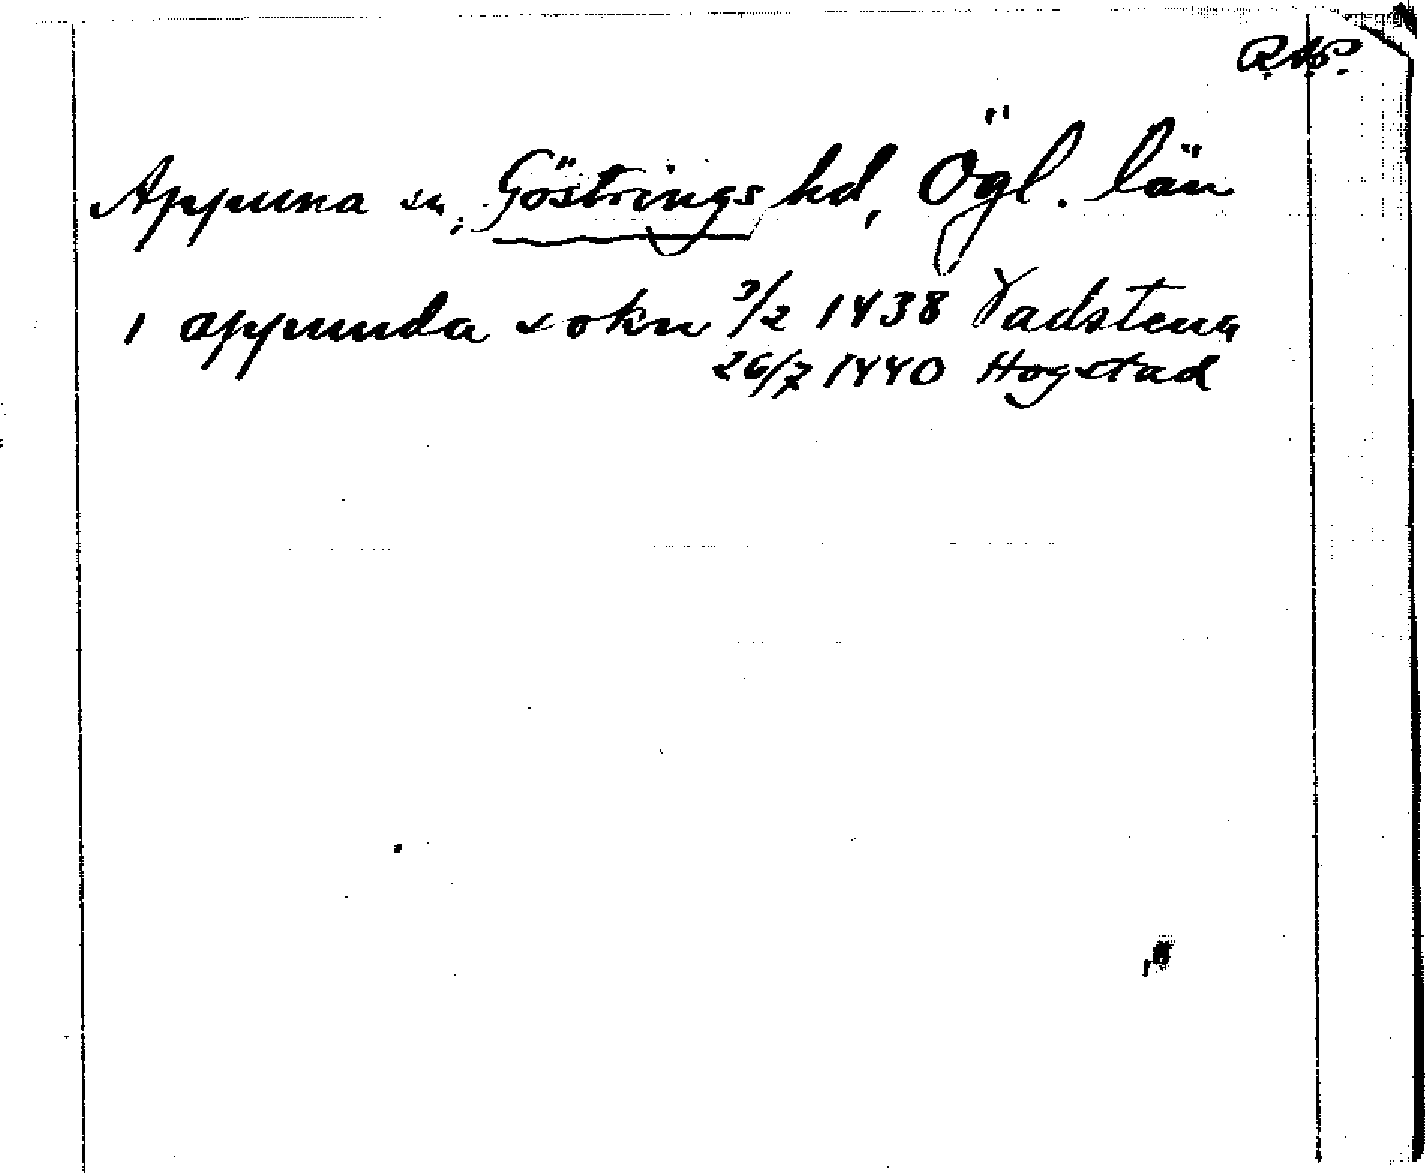 R.A.P.
Appuna sn, Göstrings hd, Ögl. län
I appunda sokn 3/2 1438 Vadstena
26/7 1440 Hogstad